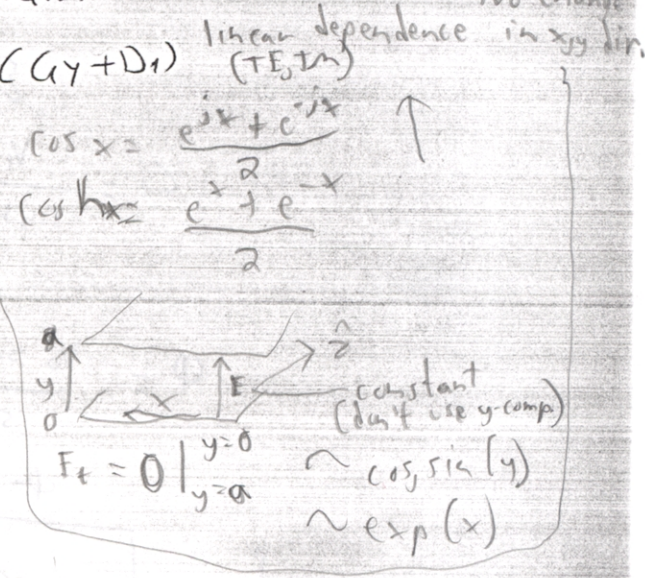 linear dependence in x,y dir.
(C₁y+D₁) (TE,TM)
cos x = (e^{jx} + e^{-jx})/2
cosh x = (e^x + e^{-x})/2
a
ẑ
y
x
E
constant
0
(don't use y-comp)
E_t = 0 |_{y=a}^{y=0}
~ cos, sin (y)
~ exp (x)